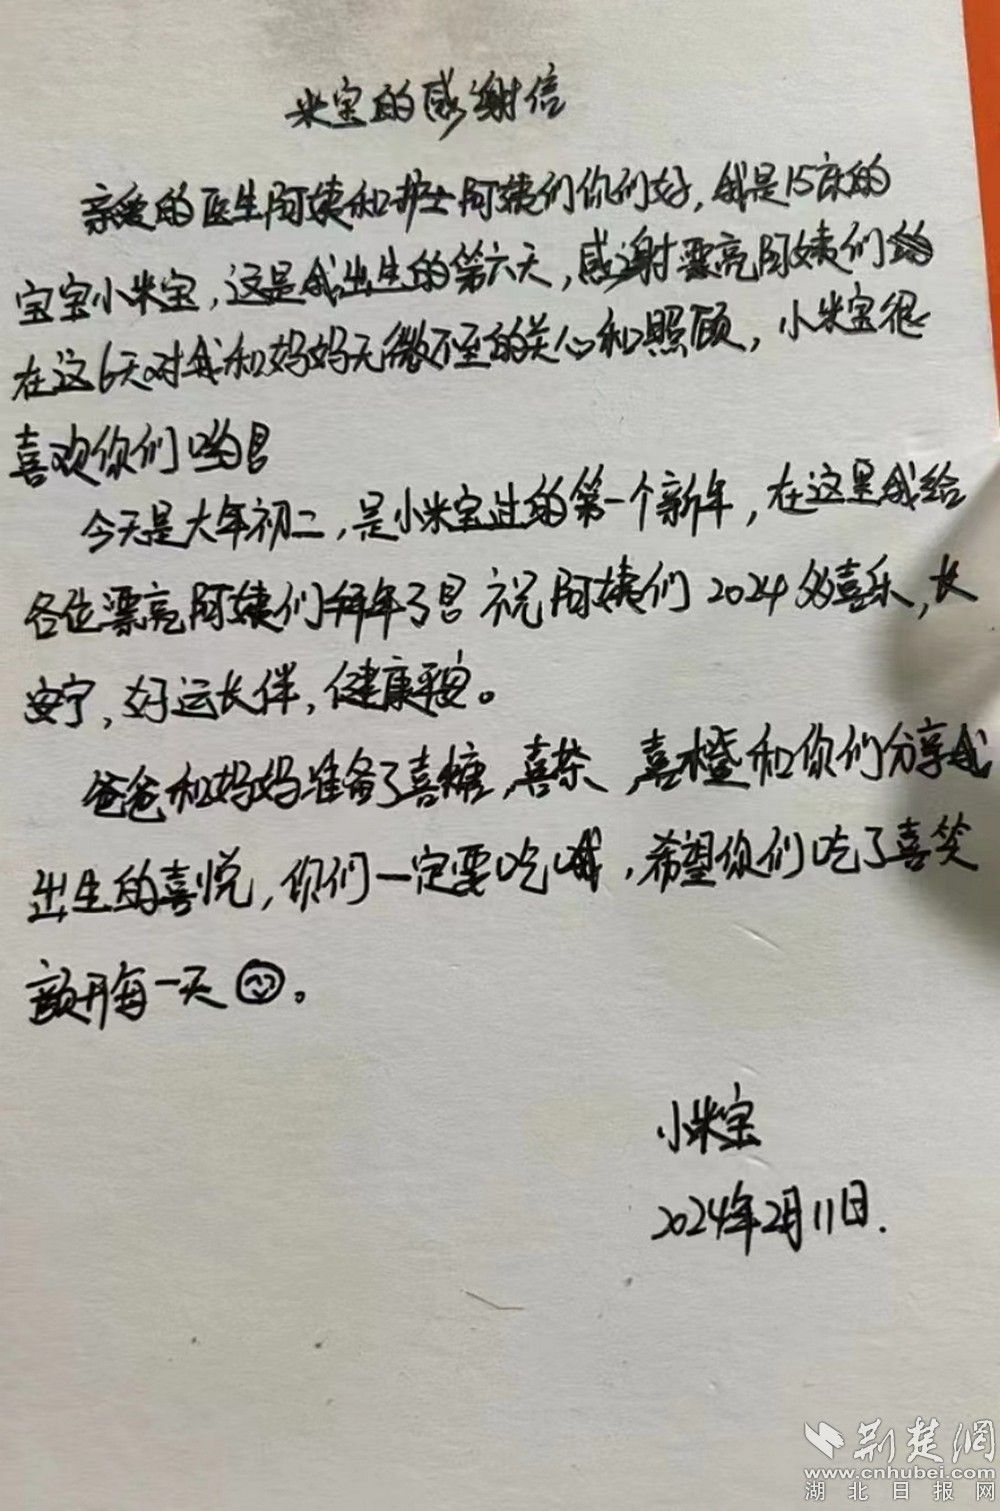 米宝的感谢信
亲爱的医生阿姨和护士阿姨们你们好，我是15床的
宝宝小米宝，这是我出生的第六天，感谢漂亮阿姨们
在这6天对我和妈妈无微不至的关心和照顾，小米宝很
喜欢你们哟！
今天是大年初二，是小米宝过的第一个新年，在这里我给
各位漂亮阿姨们拜年了！祝阿姨们2024多喜乐，长
安宁，好运长伴，健康平安。
爸爸和妈妈准备了喜糖，喜茶，喜橙和你们分享我
出生的喜悦，你们一定要吃哦，希望你们吃了喜笑
颜开每一天。
小米宝
2024年2月11日.
荆楚网
www.cnhubei.com
湖北日报网